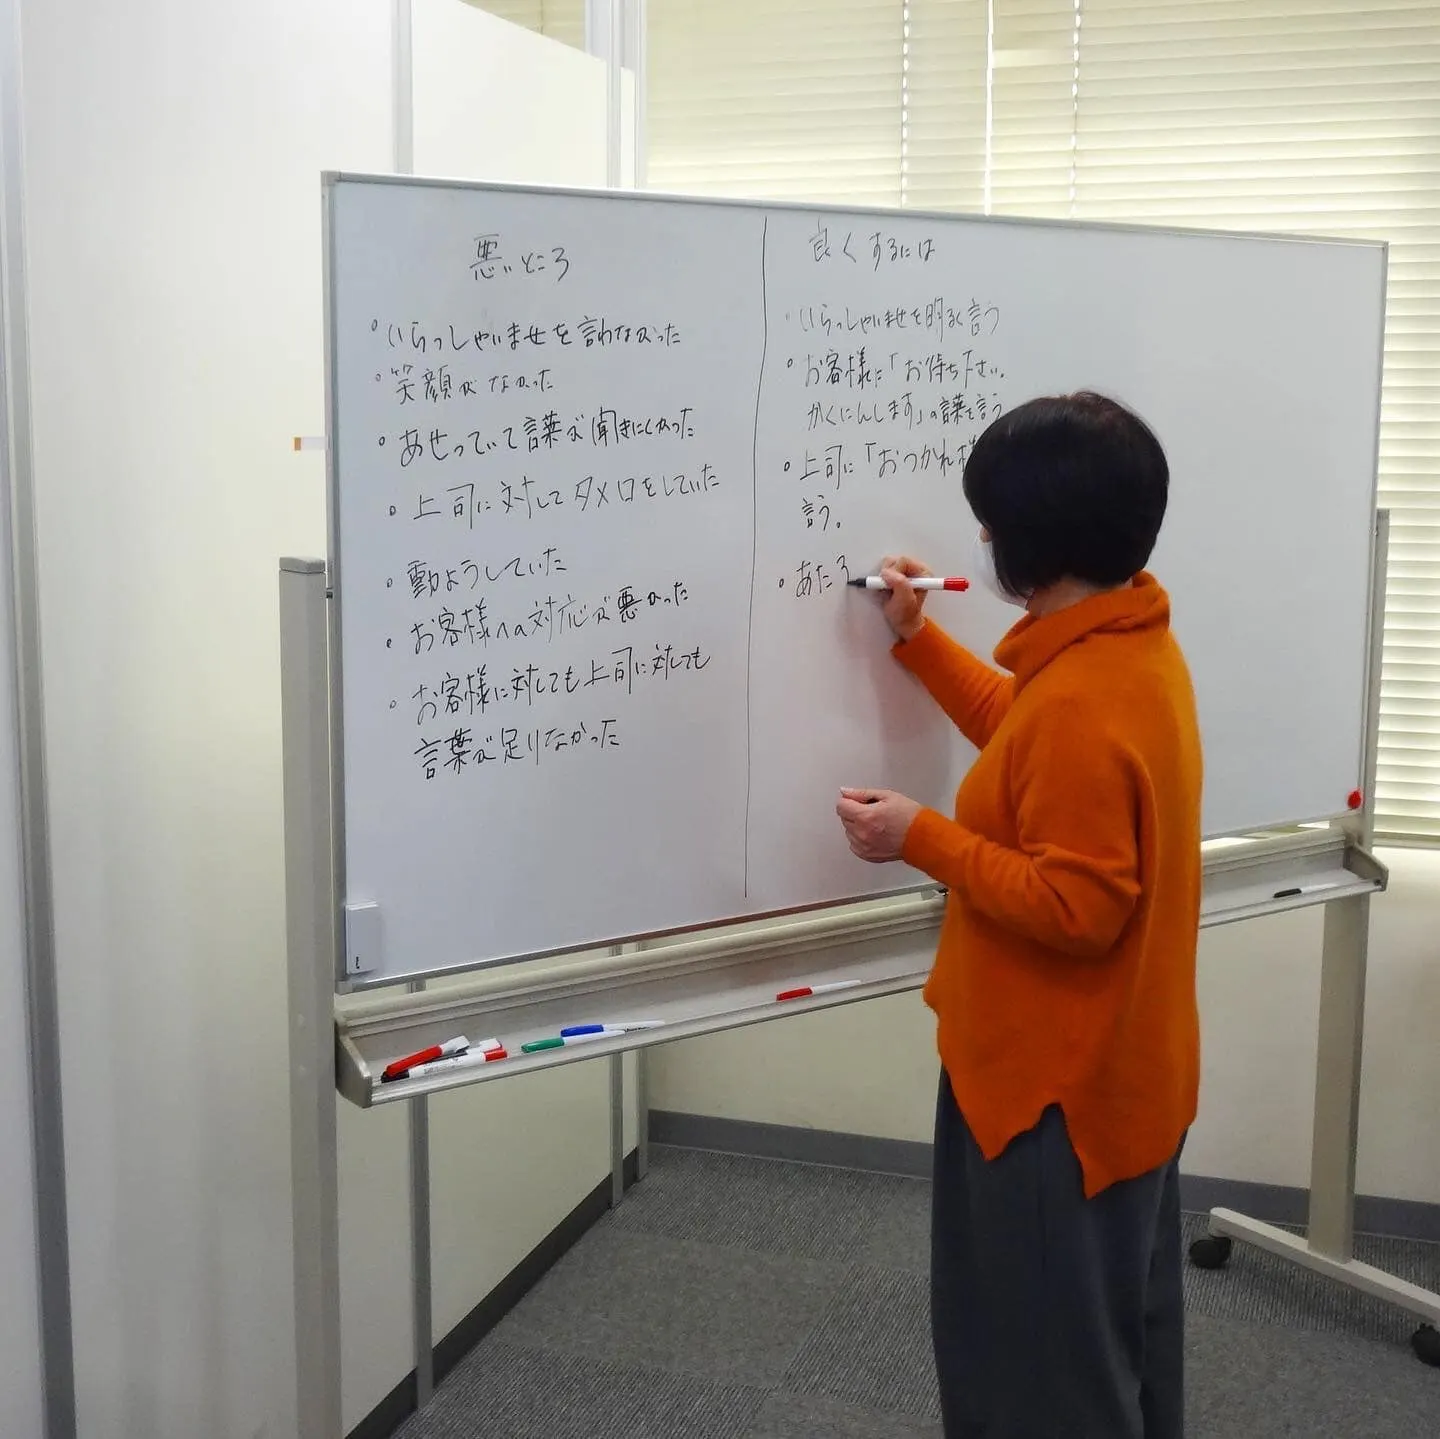 悪いところ
• いらっしゃいませを言わなかった
• 笑顔がなかった
• あせっていて言葉が聞きにくかった
• 上司に対してタメ口をしていた
• 動ようしていた
• お客様への対応が悪かった
• お客様に対しても上司に対しても
言葉が足りなかった
良くするには
• いらっしゃいませを明るく言う
• お客様に「お待ち下さい。
かくにんします」の言葉を言う
• 上司に「おつかれ様
言う。
• あたろ